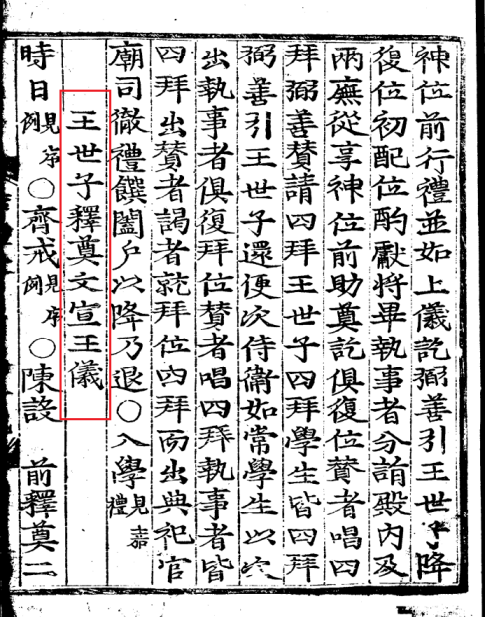 神位前行禮並如上儀訖弼善引王世子降
復位初配位酌獻將畢執事者分詣殿内及
兩廡從享神位前助奠訖俱復位贊者唱四
拜弼善贊請四拜王世子四拜學生皆四拜
弼善引王世子還便次侍衛如常學生以次
出執事者俱復拜位贊者唱四拜執事者皆
四拜出贊者謁者就拜位四拜而出典祀官
廟司徹禮饌闔户以降乃退○入學見嘉禮
王世子釋奠文宣王儀
時日見序例○齊戒見序例○陳設 前釋奠二